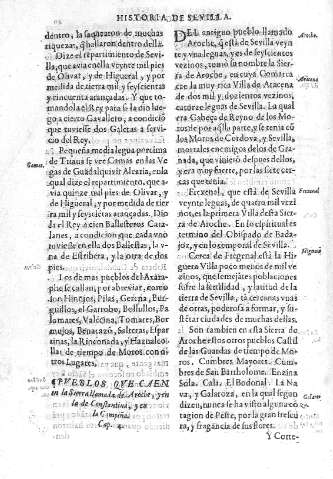 HISTORIA DE SEVILLA.
dentro, la saquearon de muchas
riquezas, que hallaron dentro della.
Dize el repartimiento de Sevilla,
que avia en ella veynte mil pies
de Olivar, y de Higueral, y por
medida de tierra mil y seyscientas
y cincuenta arançadas. Y que to-
mandola el Rey para si la dio lue-
go a cierto Cavallero, a condició
que tuviesse dos Galeras a servi-
cio del Rey.
Pequeña media legua por cima
de Triana se ver Camas en las Ve
gas de Guadalquivir Alcaria, en la
qual dize el repartimiento, que a-
via quinze mil pies de Olivar, y
de Higueral, y por medida de tier
ra mil y seyscientas arançadas. Dio
la el Rey a cien Ballesteros Cata-
lanes, a condicion que cada vno
tuviesse en ella dos Ballestas, la v-
na de Estribera, y la otra de dos
pies.
Los de mas pueblos del Axara-
phe se callan, por abreviar, como
son Hinojos, Pilas, Gerena, Bur-
guillos, el Garrobo, Bollullos, Pa
lomares, Valécina, Tomares, Bor
mujos, Benacaçó, Salteras, Espar
tinas, la Rinconada, y Haznalco-
llar de tiempo de Moros con mis
otros Lugares.
PUEBLOS QUE CAEN
en la Sierra llamada de Aroche, y en
la de Constantina, y en
la Campiña.
Cap. 4.
DEL antiguo pueblo llamado
Aroche, q̃ está de Sevilla veyn
te y vna leguas, y es de seyscientos
vezinos, tomó su nombre la Sierra
de Aroche, en cuya Comarca
cae la muy rica Villa de Aracena
de dos mil y dozientos vezinos,
catorze leguas de Sevilla. La qual
era Cabeça de Reyno de los Mo
ros de por aq̃lla parte, y se tenia có
los Moros de Cordova, y Sevilla,
mortales enemigos de los de Gra-
nada, que vinieró despues dellos,
y era muy fuerte, por las siete cer-
cas.
Frexenal, que está de Sevilla
veynte leguas, de quatro mil vezi
nos, es la primera Villa desta Sier
ra de Aroche. En lo espiritual es
termino del Obispado de Badajoz,
y en lo temporal de Sevilla.
Cerca de Fregenal está la Hi
guera Villa poco menos de mil ve
zinos, que le mejáte poblaciones
sufre la fertilidad, y latitud de la
sierra de Sevilla, tá cercanas vnas
de otras, podersse a formar, y su-
stentar de bastimentos.
Son tambien en esta Sierra de
Aroche estos otros pueblos Castil
de las Guardas de tiempo de Mo-
ros, Cumbres Mayores, Cumbres
de San Bartholome, Enzina
Sola, Cala, El Bodonal, La Na-
va, y Galaroza, en la qual segun
dizen, nunca se ha visto alguna con
tagion de Peste, por la gran frescu
ra, y fragancia de sus flores.
Y Corte-
Camas.
Aroche.
Aracena
Frexenal
Higuera
Galaro.